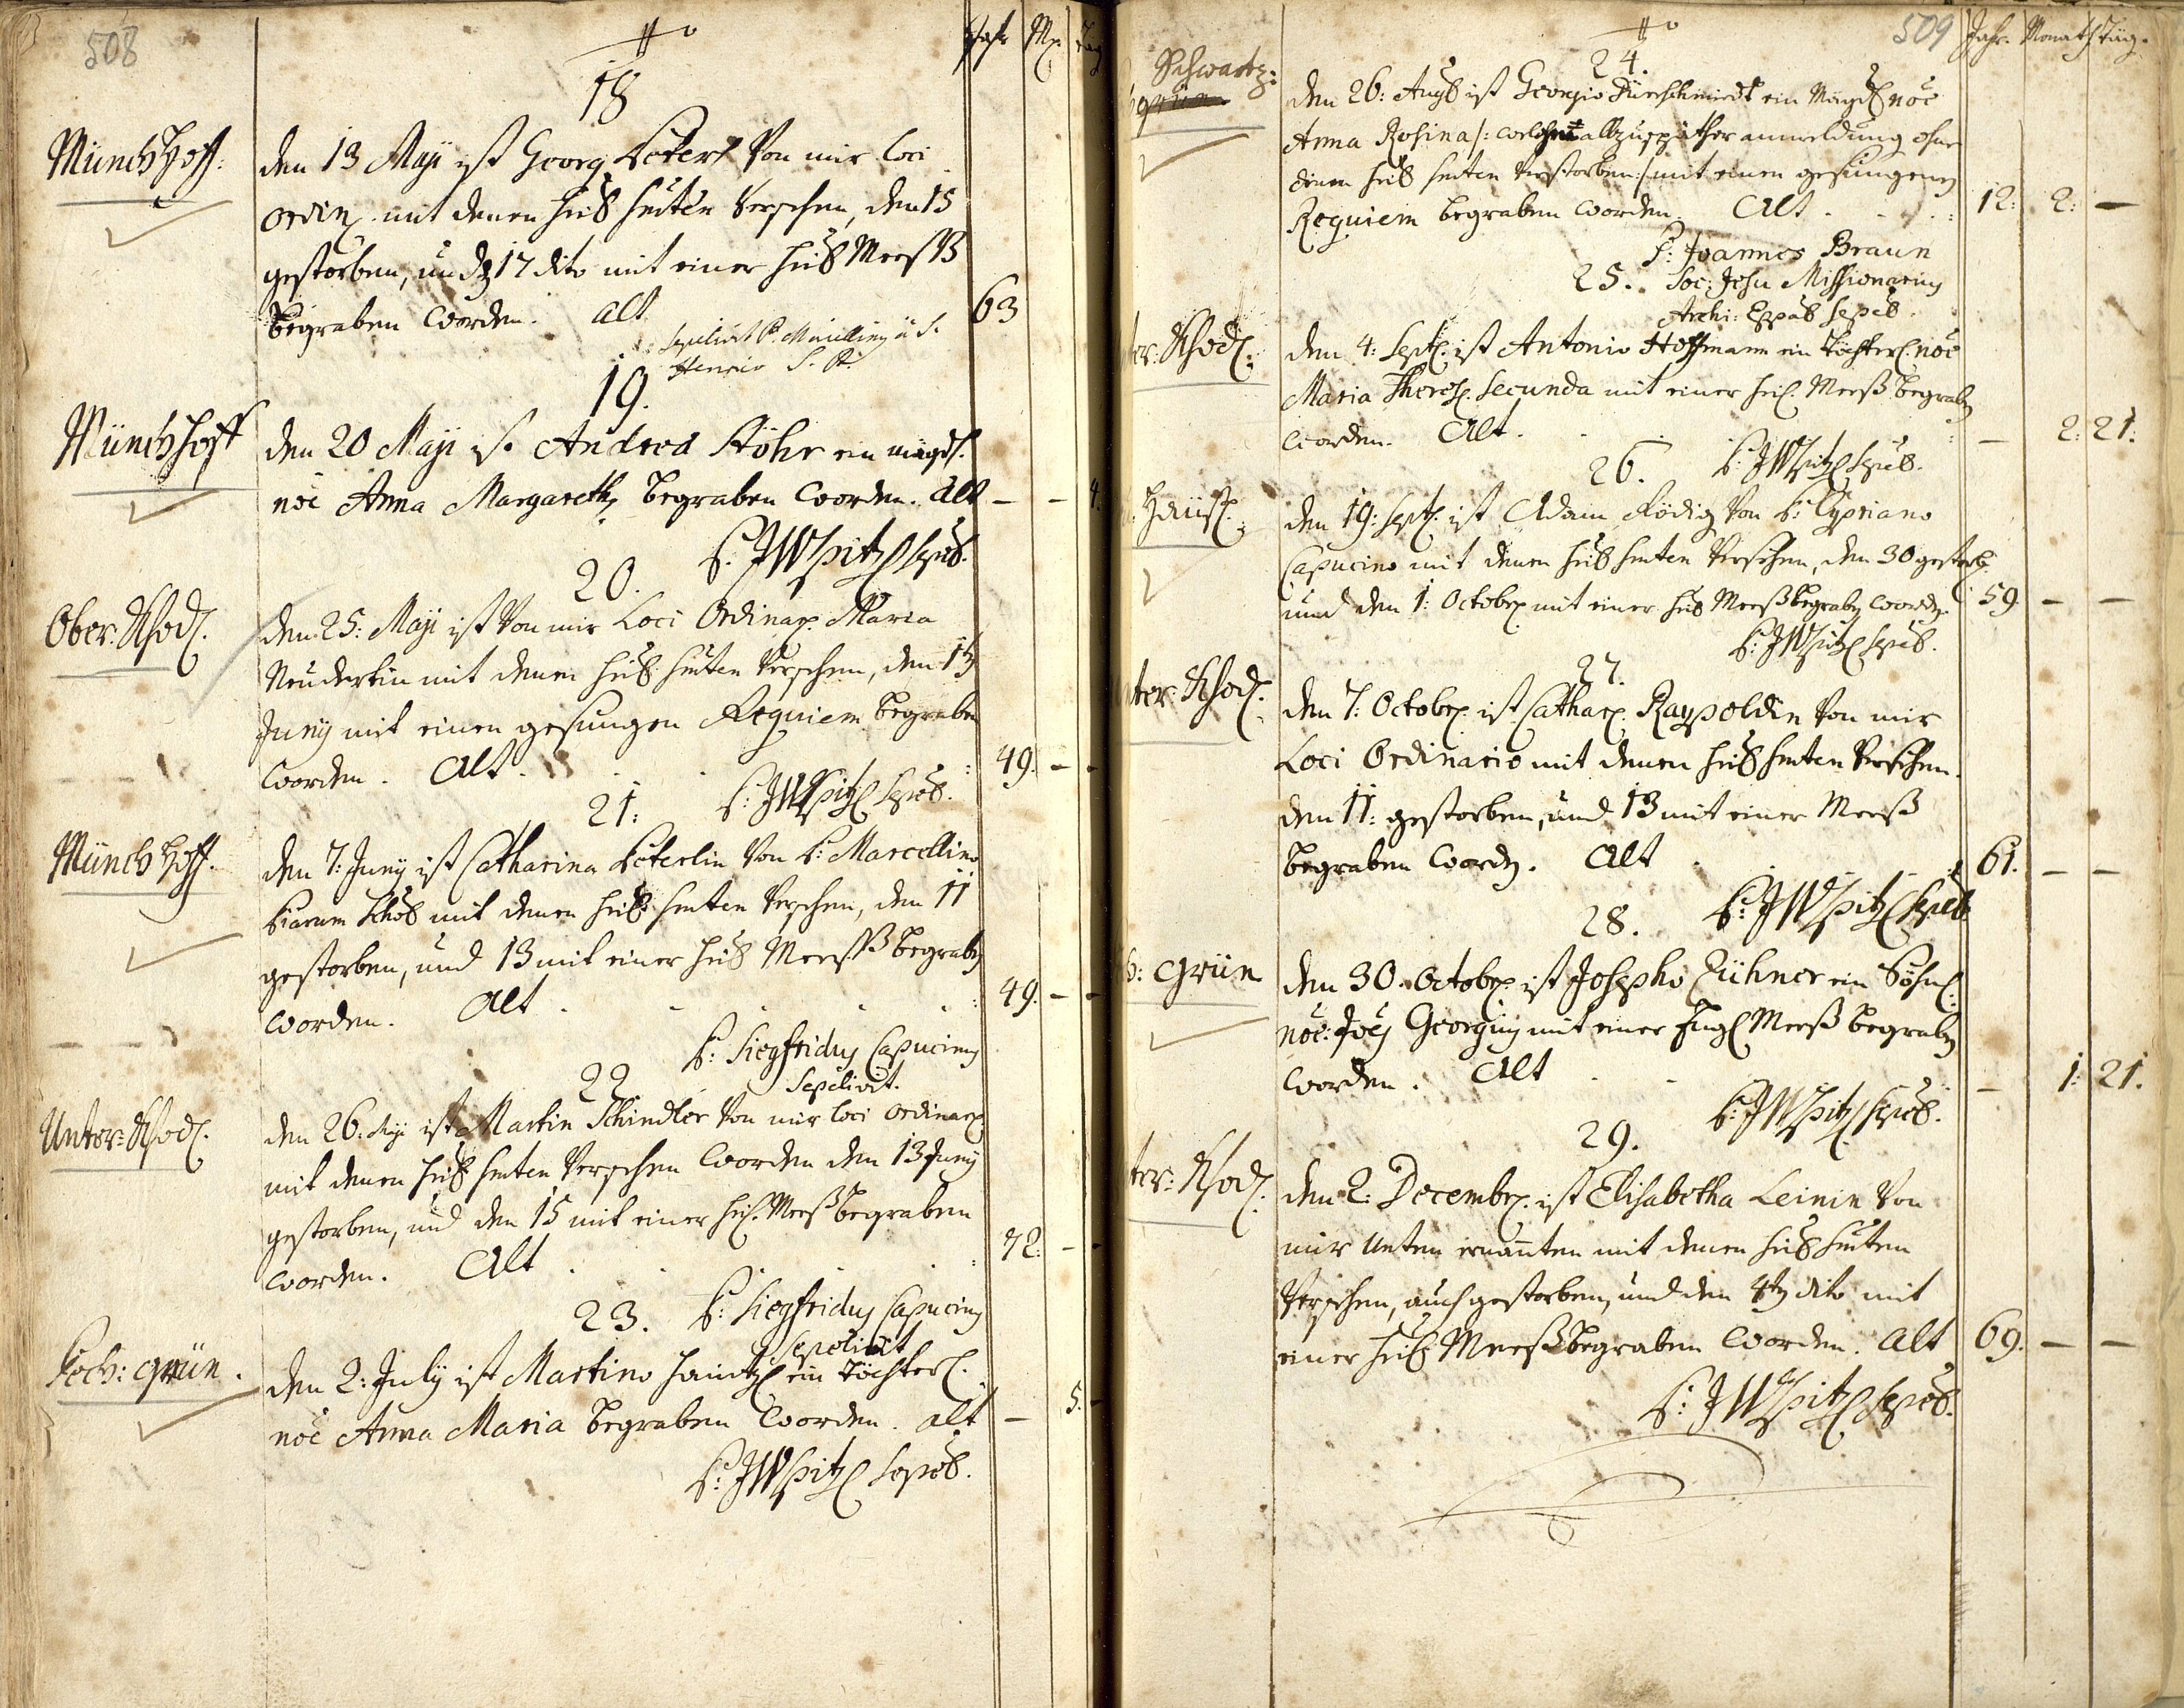 508
No
Jahr M. Tag
18
Münchhoff:
den 13 Maji ist Georg Peterl Von mir loci
ordin. mit denen heil. Sacramenten Versehen, den 15
gestorben, und 17 dito mit einer heil. Meesß
begraben worden. alt
63
sepelivit P. Marcellinus à S.
Henrico
19.
Münchhoff
den 20 Maji ist Andrea Röhr ein mägdl.
nōe Anna Margareth, begraben worden. alt — — 4.
P. JWSpitzl sepel.
20.
Ober: Rhod.
den 25: Maji ist Von mir Loci Ordinar. Maria
mit denen heil. Versehen, den
Juny mit einen gesungen Requiem begraben
worden. Alt. 49. — —
P: JWSpitzl sepel.
21:
Münchhoff.
den 7: Juny ist Catharina Peterlin Von P: Marcellino
mit denen heil. Versehen, den 11
gestorben, und 13 mit einer heil. Meesß begraben
worden. alt 49. — —
P: Siegfridus Capucinus
Sepelivit.
22
Unter: Rhod.
den 26: Maji ist Martin Schindler Von mir loci ordinar.
mit denen heil. Versehen worden den 13 Juny
gestorben, und den 15 mit einer heil. Meeß begraben
worden. Alt 72: — —
P: Siegfridus Capucinus
Sepelivit
23.
Koch: grün.
den 2: July ist Martino ein töchterl.
nōe Anna Maria begraben worden. alt — 5. —
P: JWSpitzl sepel.
509
No
Jahr. Monath Täg.
24.
Schwartz:
grün
den 26: Aug. ist Georgio Dürschmiedt ein Mägdl nōe
Anna Rosina /: allzuspäther anmeldung ohne
denen heil. Verstorben :/ mit einen gesungenen
Requiem begraben worden. Alt 12: 2: —
P: Joannes Braun
Soc: Jesu Missionarius
Archi: Eppal. sepel.
25.
ter: Rhod.
den 4: Sept. ist Antonio Hoffmann ein töchterl. nōe
Maria Theres. Secunda mit einer heil. Meeß begraben
worden. Alt. — 2: 21:
P: JWSpitzl sepel.
26.
Häusl.
den 19: Sept. ist Adam Rödig Von P: Cypriano
Capucino mit denen heil. Versehen, den 30 gestorb.
und den 1: Octobr. mit einer heil. Meeß begraben worden. 59. — —
P: JWSpitzl sepel.
27.
nter: Rhod.
den 7: Octobr. ist Cathar. Raypoldin Von mir
Loci Ordinario mit denen heil. Versehen.
den 11: gestorben, und 13 mit einer Meeß
begraben worden. Alt 61. — —
P: JWSpitzl sepel
28.
b: grün
den 30. Octobr. ist Josepho Zühner ein Söhnl.
nōe: Georgius mit einer Engl Meeß begraben
worden. Alt — 1: 21.
P: JWSpitzl sepel.
29.
ter: Rhod.
den 2: Decembr. ist Elisabetha Leinin Von
mir Unten ernannten mit denen heil.
Versehen, auch gestorben, und den 4ten dito mit
einer heil. Meeß begraben worden. Alt 69. — —
P: JWSpitzl sepel.